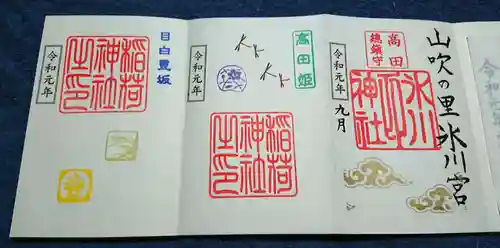 山吹の里氷川宮
高田
總鎮守
氷川
神社
令和元年
九月
高田姫
稲荷
神社
之印
令和元年
目白豊坂
稲荷
神社
之印
令和元年